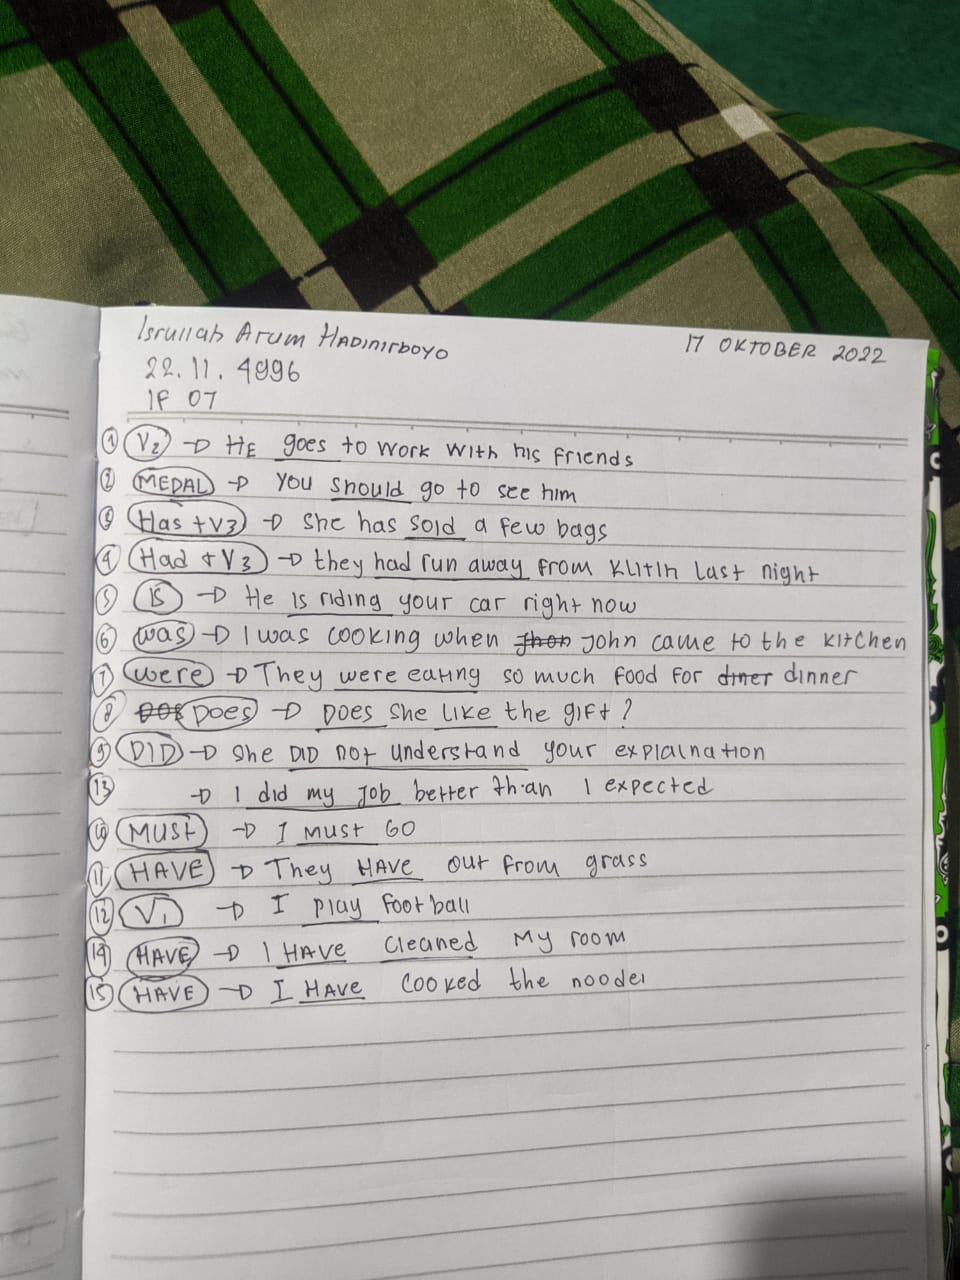 Isrullah Arum HADINIRBOYO
17 OKTOBER 2022
22.11.4996
IF 07
1 V2 → HE goes to work with his friends
2 MEDAL → you should go to see him
3 Has +V3 → she has sold a few bags
4 Had + V3 → they had run away from KLITIH Last night
5 IS → He is riding your car right now
6 was → I was cooking when Jhon John came to the kitchen
7 were → They were eating so much food for diner dinner
8 DOES → DOES she LIKE the gift?
9 DID → she DID not understand your explaination
13 → I did my Job better than I expected
10 MUST → I MUST GO
11 HAVE → They HAVE out from grass
12 V1 → I play football
14 HAVE → I HAVE cleaned My room
15 HAVE → I HAVE cooked the noodel